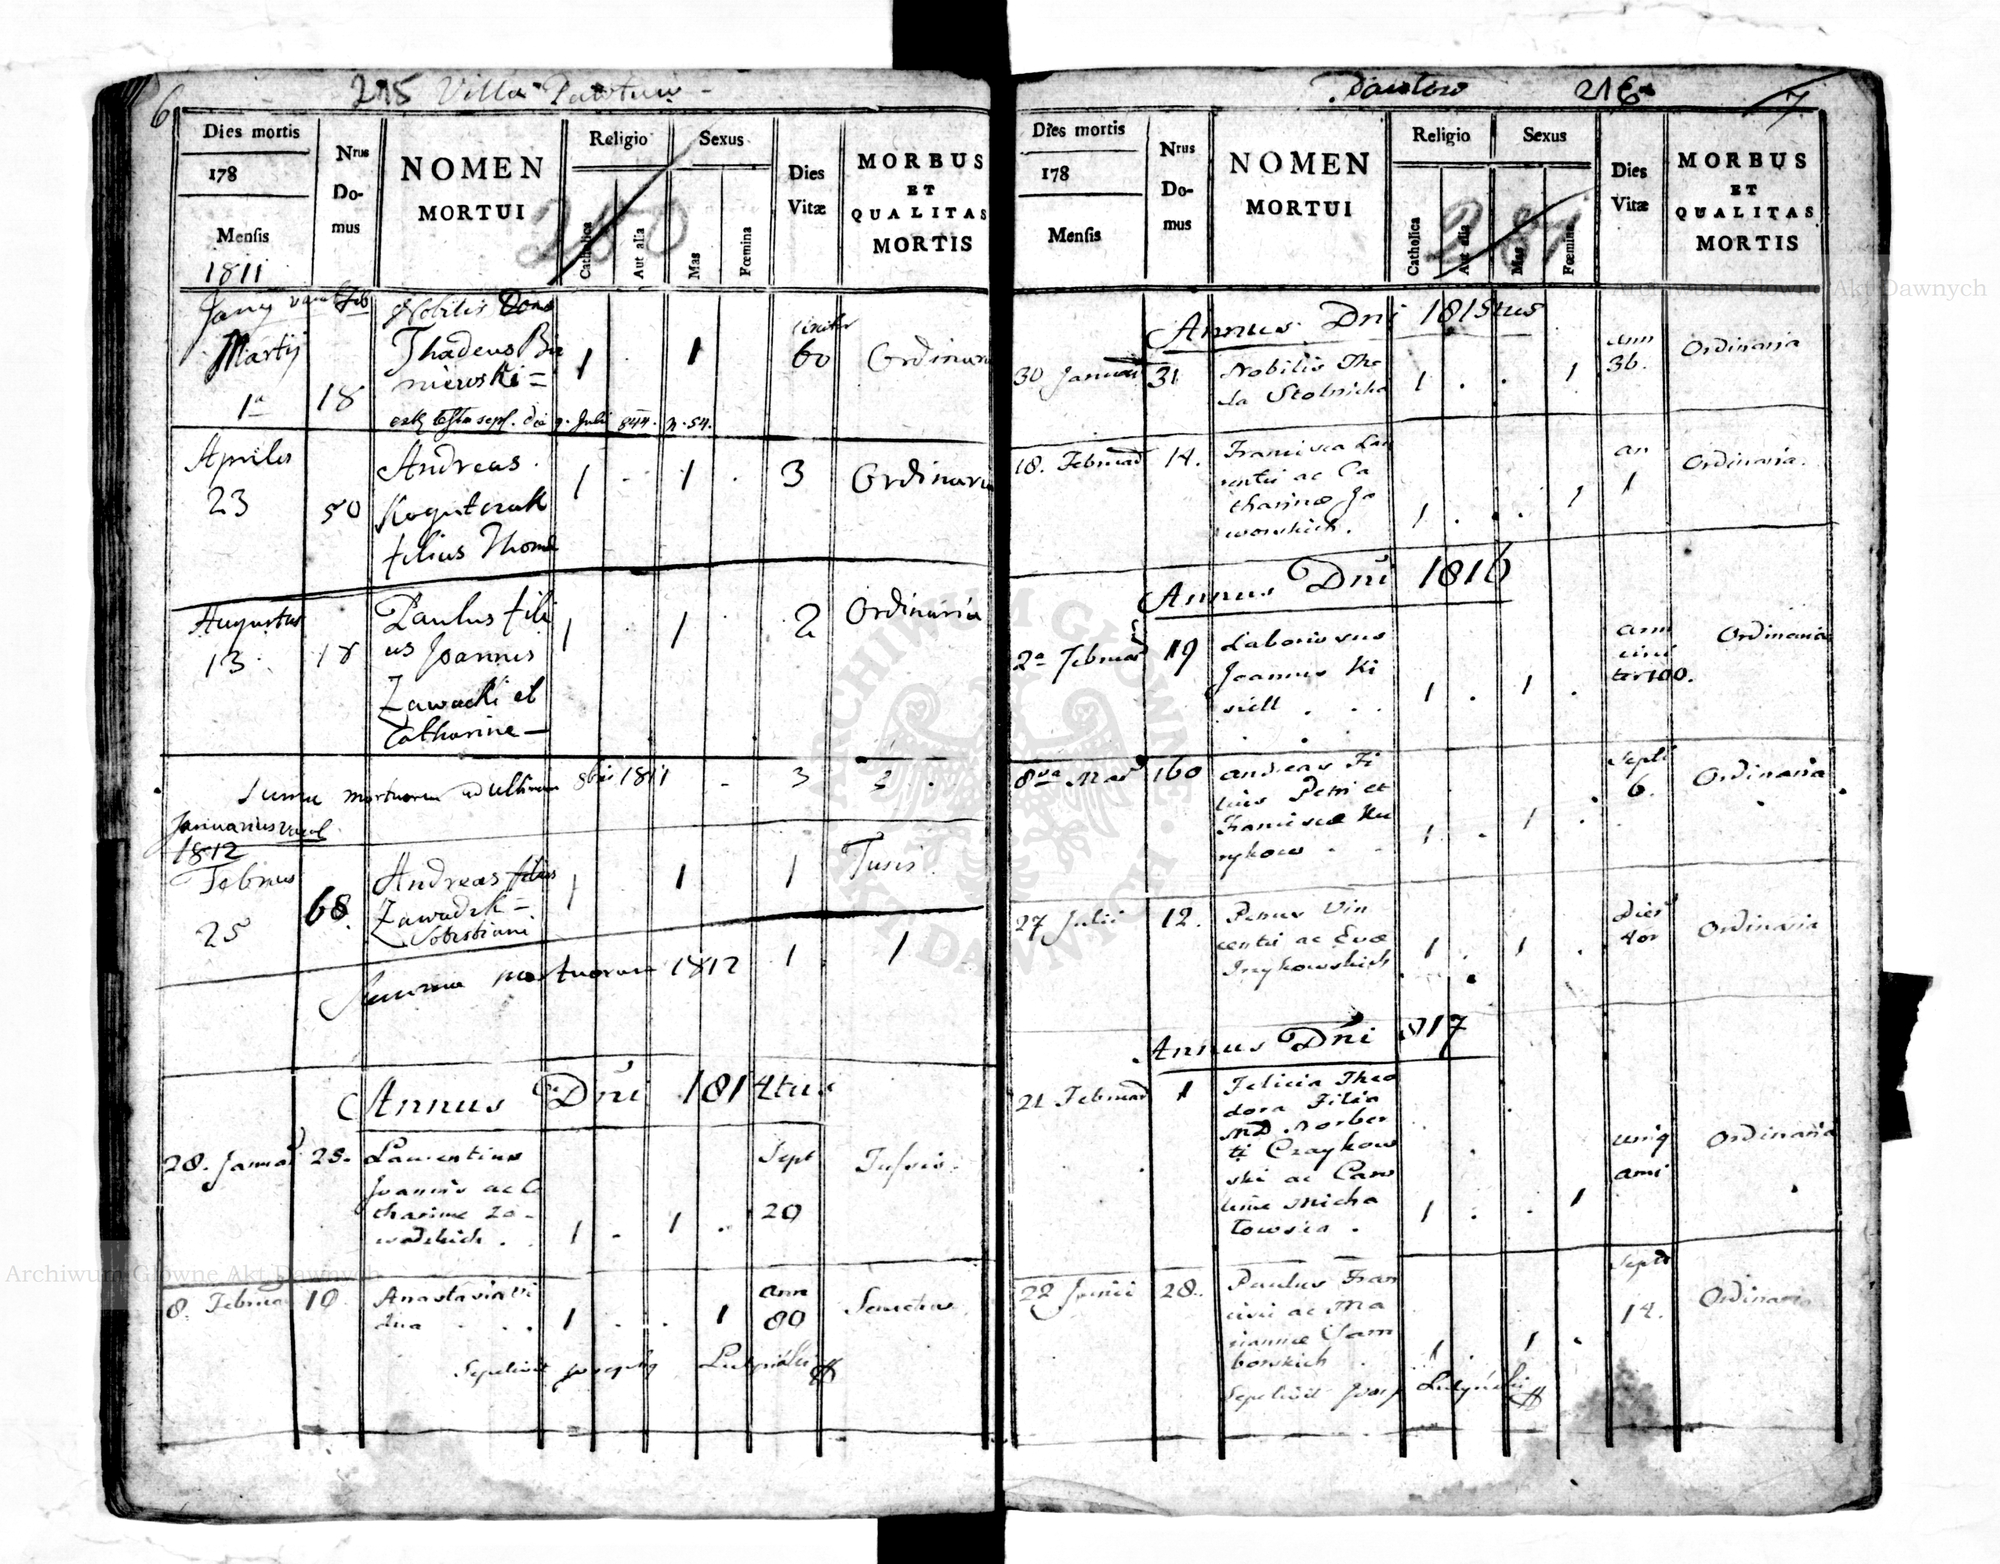 6
215 Villa
Dies mortis
178
Mensis
1811
Nrus
Do-
mus
NOMEN
MORTUI
Religio
Catholica
Aut alia
Sexus
Mas
Fœmina
Dies
Vitæ
MORBUS
ET
QUALITAS
MORTIS
280
Nobilis
Martij
1a 18
Thadeus
niewski =
1 . 1
60
9. Juli 844. n. 54.
Aprilis
23
50
Andreas
Kogutczak
filius Thome
1 . 1 . 3
Augustus
13
18
Paulus fili
us Joannis
Zawacki et
Catharine —
1 . 1 . 2 Ordinaria
Suma mortuorum ad ultimam 8bris 1811 - 3
Januarius
1812
25
68
Andreas filius
1 . 1 1 Tusis
Summa mortuorum 1812 1 1
Annus Dni 1814tus
28. Januar 25. Laurentius
Joannis ac Ca
tharinae Za-
wadzkich .
1 . 1 . Sept
20
Tussis.
8. Februar 10 Anastasia vi
dua . . .
1 . . 1 ann
80
Senectus
Sepelivit
Pawlow 216
7.
Dies mortis
178
Mensis
Nrus
Do-
mus
NOMEN
MORTUI
Religio
Catholica
Aut alia
Sexus
Mas
Fœmina
Dies
Vitæ
MORBUS
ET
QUALITAS
MORTIS
281
Annus Dni 1815tus
30 Januar 31 Nobilis The
cla Stolnicka
1 . . 1 ann
36.
Ordinaria
18. Februar 14. Francisca Lau
rentii ac Ca
tharinae Ja
worskich .
1 . . 1 an
1
Ordinaria.
Annus Dni 1816
2a Februar 19 Laboriosus
Joannes Ki
siell . . .
1 . 1 . ann
circi
ter 100.
Ordinaria
8va Mar 160 Andreas Fi
lius Petri et
Franciscae
1 . 1 . Septi
6.
Ordinaria
27 Julii 12. Petrus Vin
centii ac Evae
1 . 1 . Dies
Ordinaria
Annus Dni 1817
21 Februar 1 Felicia Theo
dora Filia
MD Norber
ti Czaykow
ski ac Caro
linae Micha
lowska .
1 . . 1 Ordinaria
22 Junii 28. Paulus Fran
cisci ac Ma
riannae
1 . 1 . Sept
14.
Ordinaria
Sepelivit
ARCHIWUM GŁÓWNE AKT DAWNYCH
Archiwum Główne Akt Dawnych
Archiwum Główne Akt Dawnych